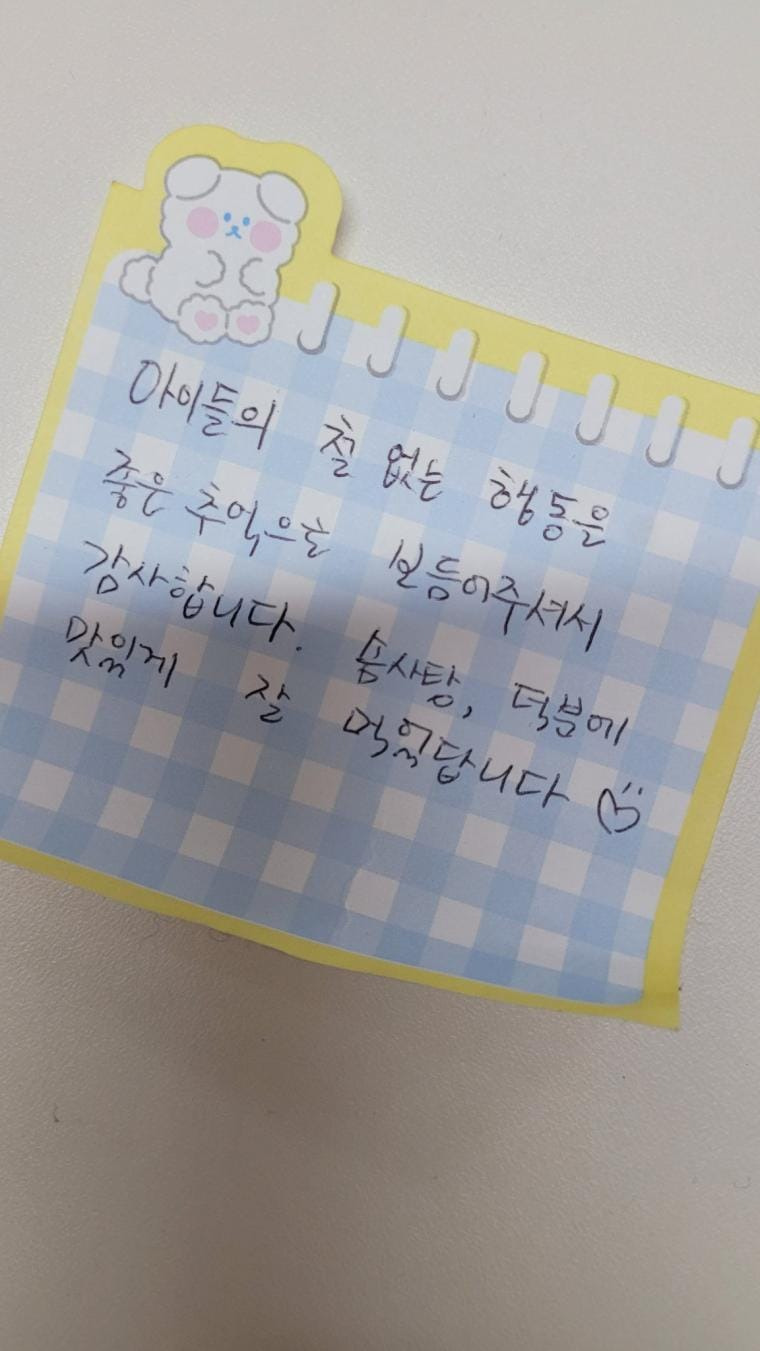 아이들의 철 없는 행동을
좋은 추억으로 보듬어주셔서
감사합니다. 솜사탕, 덕분에
맛있게 잘 먹었답니다